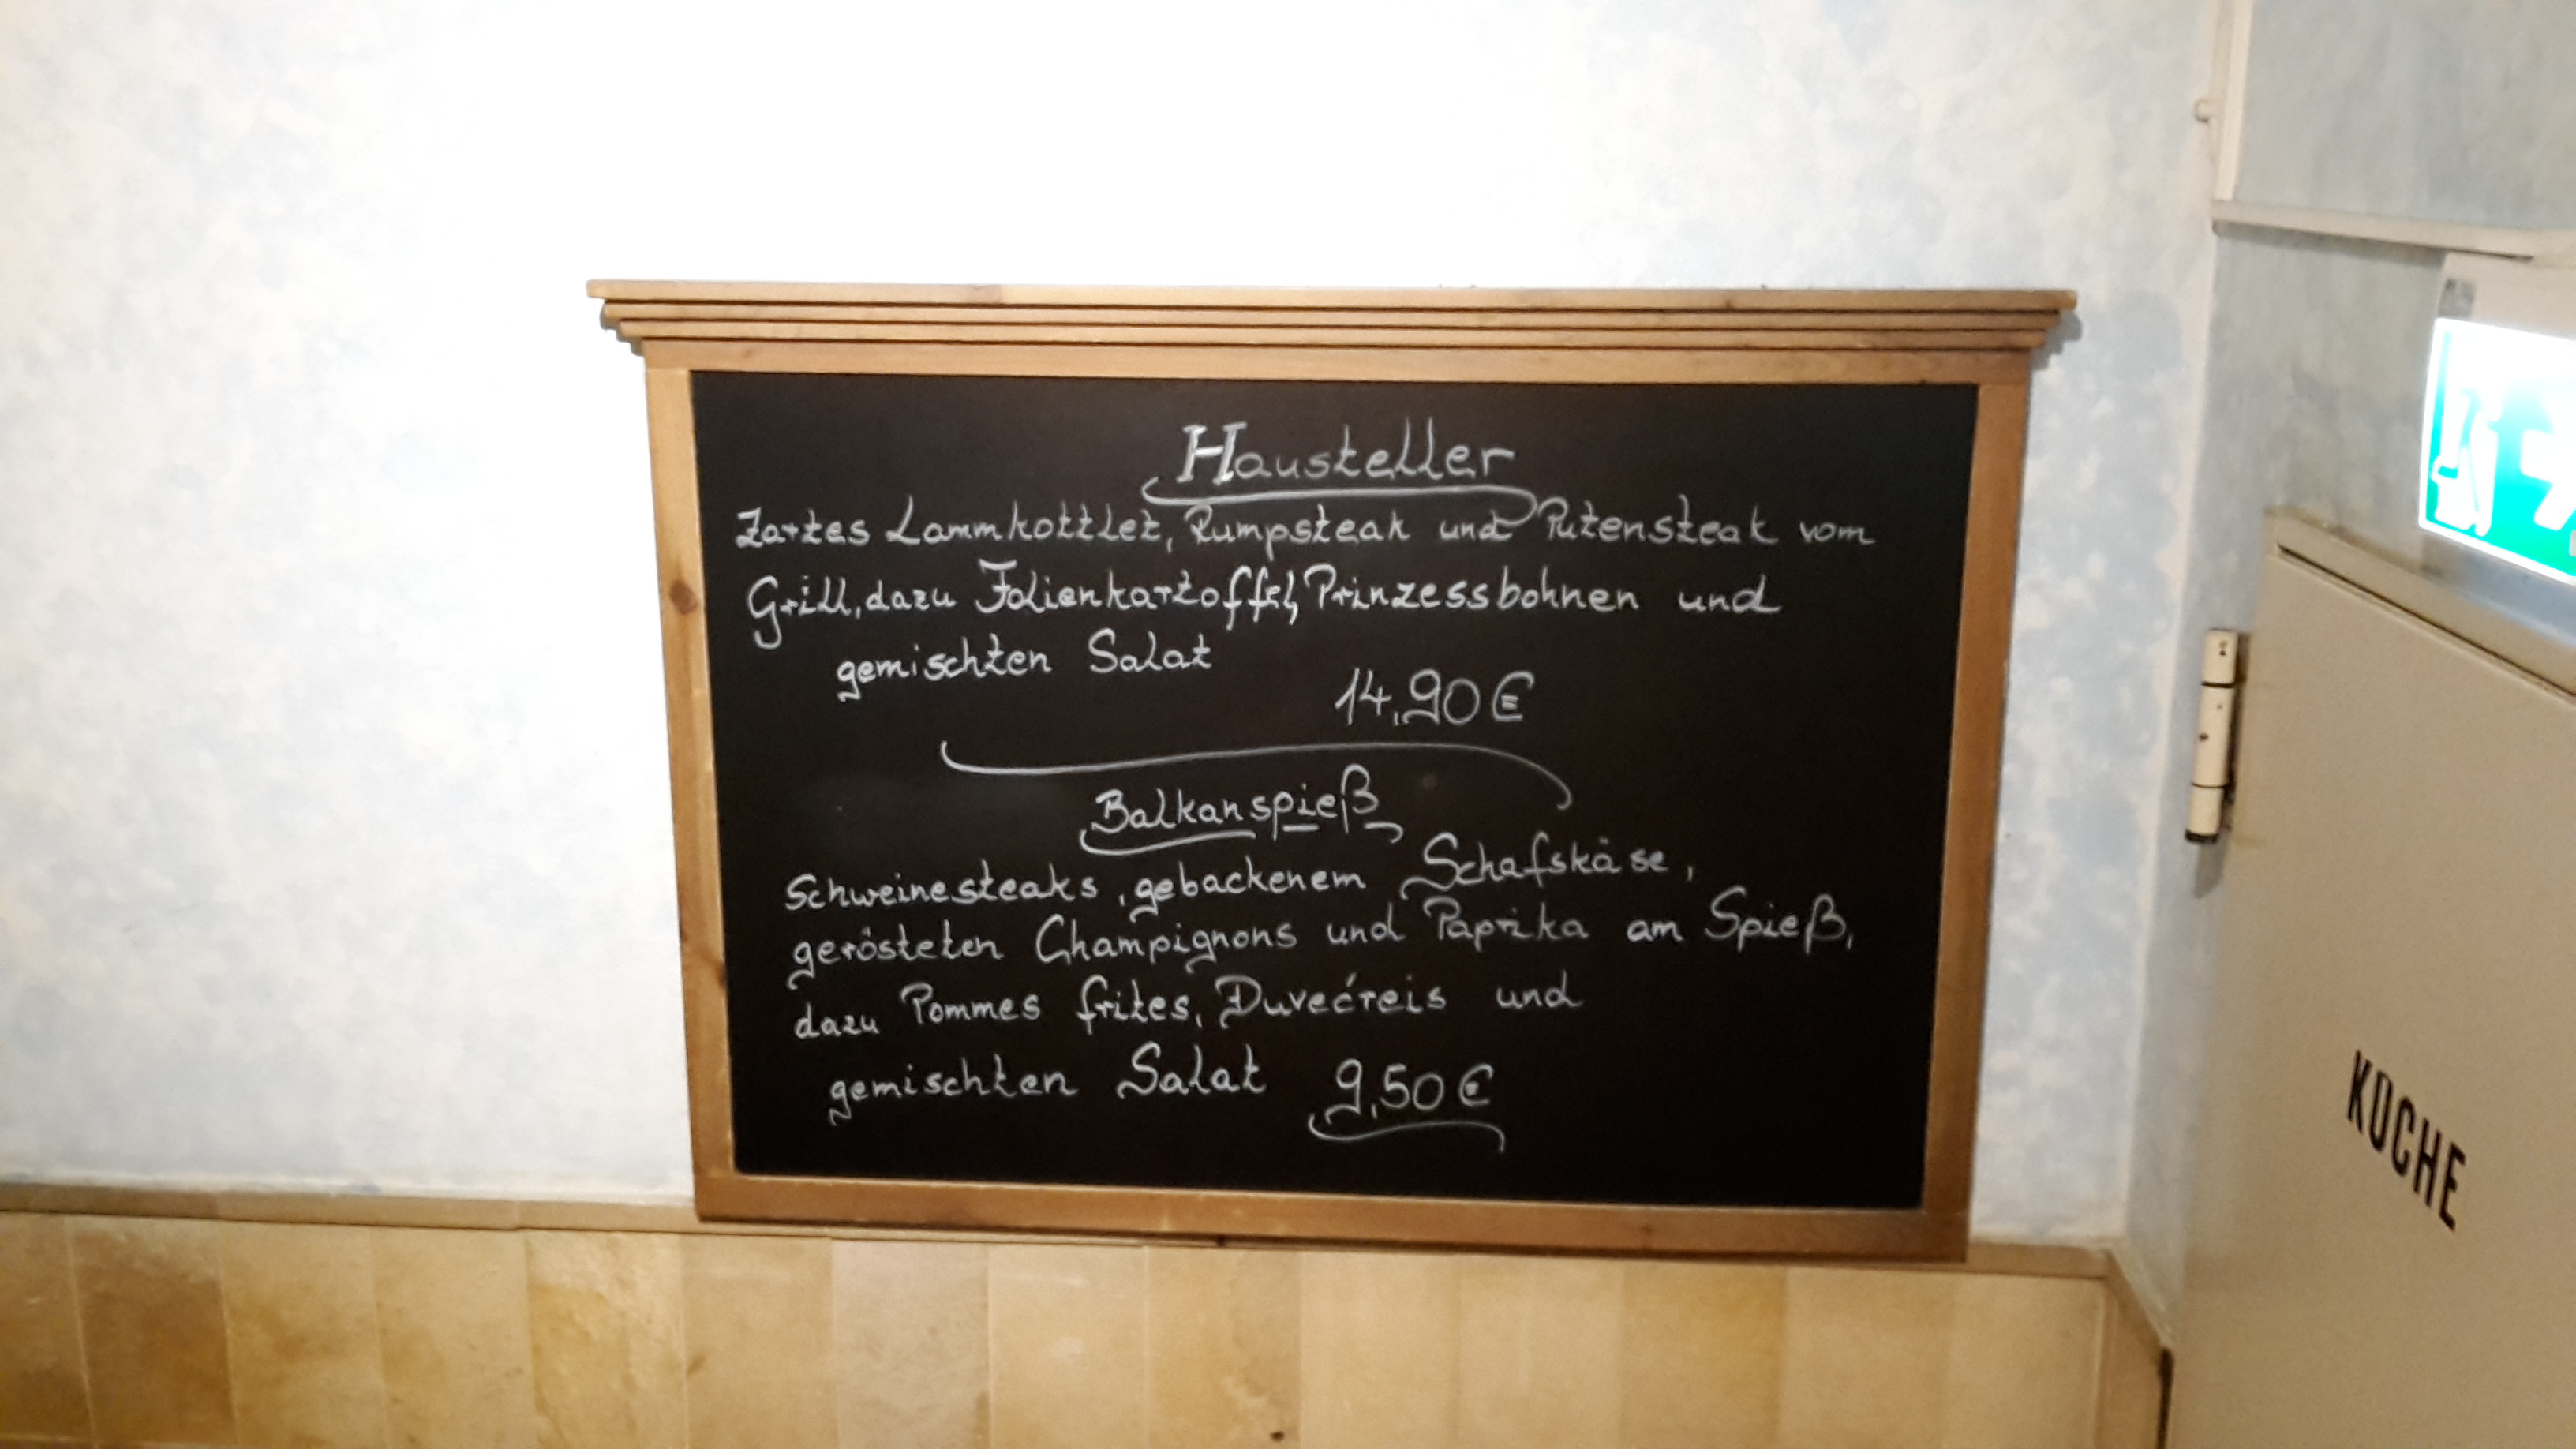 Hausteller
Zartes Lammkottlet, Rumpsteak und Putensteak vom
Grill, dazu Folienkartoffel, Prinzessbohnen und
gemischten Salat
14,90 €
Balkanspieß
Schweinesteaks, gebackenem Schafskäse,
gerösteten Champignons und Paprika am Spieß,
dazu Pommes frites, Duvećreis und
gemischten Salat 9,50 €
KÜCHE